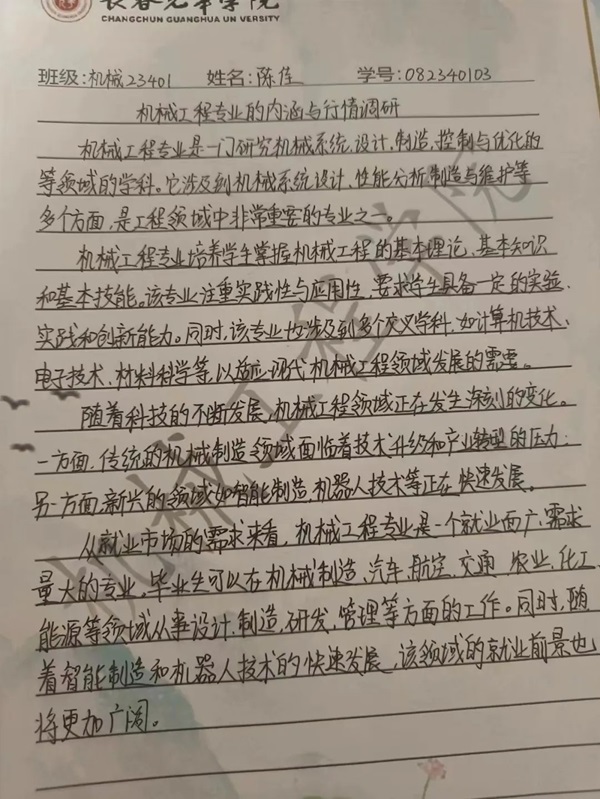 长春光华学院
CHANGCHUN GUANGHUA UN VERSITY
班级:机械23401 姓名:陈佳 学号:082340103
机械工程专业的内涵与行情调研
机械工程专业是一门研究机械系统、设计、制造、控制与优化的
等领域的学科。它涉及到机械系统设计、性能分析、制造与维护等
多个方面,是工程领域中非常重要的专业之一。
机械工程专业培养学生掌握机械工程的基本理论、基本知识
和基本技能。该专业注重实践性与应用性,要求学生具备一定的实验、
实践和创新能力。同时,该专业也涉及到多个交叉学科,如计算机技术、
电子技术、材料科学等,以适应现代机械工程领域发展的需要。
随着科技的不断发展,机械工程领域正在发生深刻的变化。
一方面,传统的机械制造领域面临着技术升级和产业转型的压力;
另一方面,新兴的领域如智能制造,机器人技术等正在快速发展。
从就业市场的需求来看,机械工程专业是一个就业面广、需求
量大的专业。毕业生可以在机械制造、汽车、航空、交通、农业、化工、
能源等领域从事设计、制造、研发、管理等方面的工作。同时,随
着智能制造和机器人技术的快速发展,该领域的就业前景也
将更加广阔。
机械工程学院